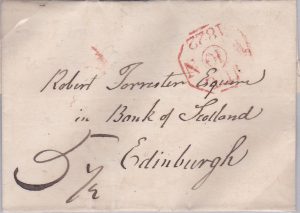 1822
Robert Forrester Esquire
in Bank of Scotland
Edinburgh
5 1/2